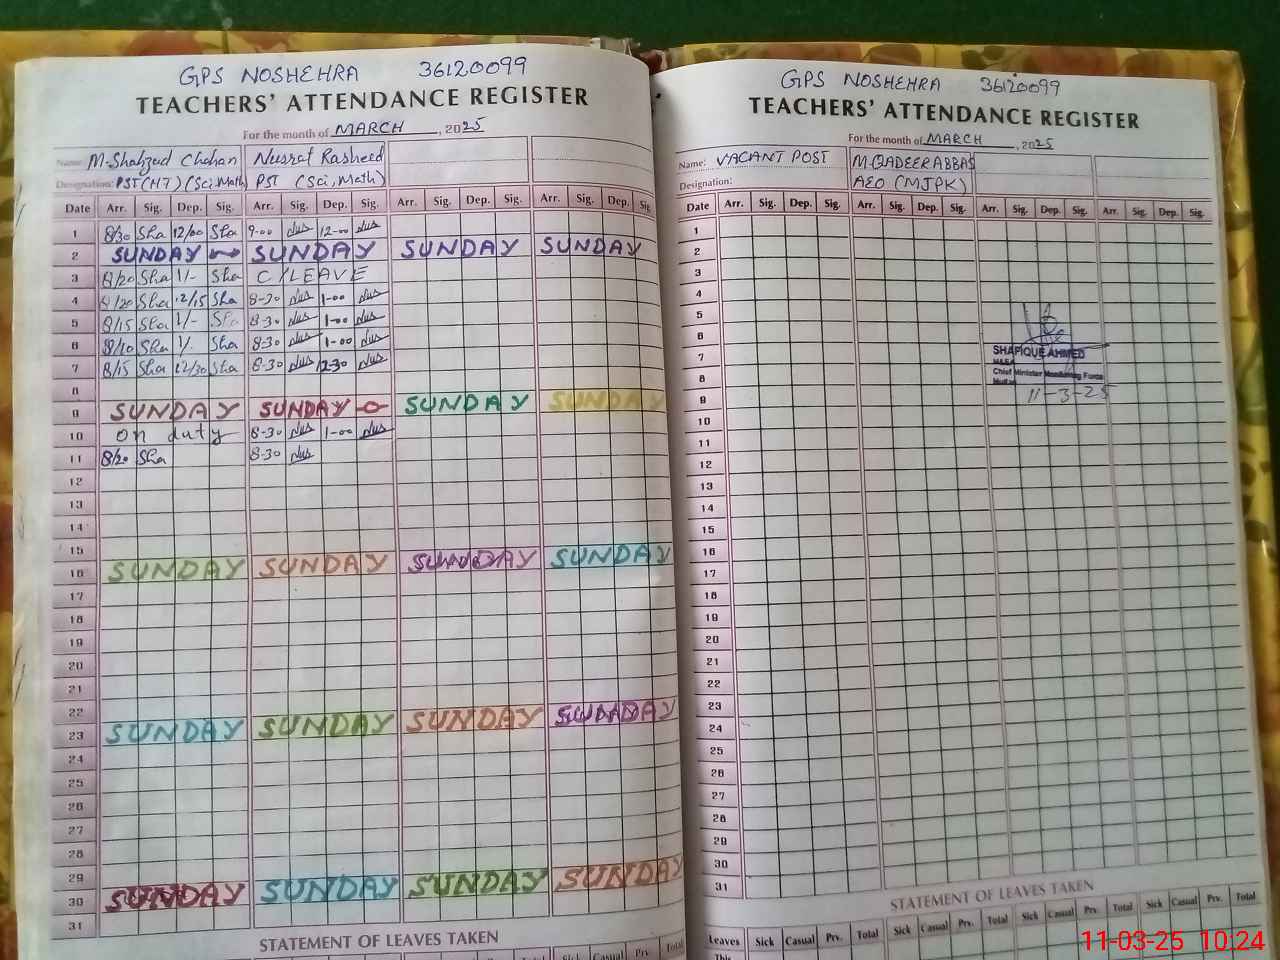 GPS NOSHEHRA 36120099
TEACHERS' ATTENDANCE REGISTER
For the month of MARCH, 2025
Name: M.Shahzad Chohan Nusrat Rasheed
Designation: PST(HT)(Sci,Math) PST (Sci,Math)
Date Arr. Sig. Dep. Sig. Arr. Sig. Dep. Sig. Arr. Sig. Dep. Sig. Arr. Sig. Dep. Sig.
1 8/30 Sha 12/00 Sha 9-00 Nus 12-00 Nus
2 SUNDAY SUNDAY SUNDAY SUNDAY
3 8/20 Sha 1/- Sha C/LEAVE
4 8/20 Sha 12/15 Sha 8-30 Nus 1-00 Nus
5 8/15 Sha 1/- Sha 8-30 Nus 1-00 Nus
6 8/10 Sha 1/. Sha 8-30 Nus 1-00 Nus
7 8/15 Sha 12/30 Sha 8-30 Nus 12-30 Nus
8
9 SUNDAY SUNDAY SUNDAY SUNDAY
10 on duty 8-30 Nus 1-00 Nus
11 8/20 Sha 8-30 Nus
12
13
14
15
16 SUNDAY SUNDAY SUNDAY SUNDAY
17
18
19
20
21
22
23 SUNDAY SUNDAY SUNDAY SUNDAY
24
25
26
27
28
29
30 SUNDAY SUNDAY SUNDAY SUNDAY
31
STATEMENT OF LEAVES TAKEN
Casual Prv. Total
GPS NOSHEHRA 36120099
TEACHERS' ATTENDANCE REGISTER
For the month of MARCH, 2025
Name: VACANT POST M.QADEER ABBAS
Designation: AEO (MJPK)
Date Arr. Sig. Dep. Sig. Arr. Sig. Dep. Sig. Arr. Sig. Dep. Sig. Arr. Sig. Dep. Sig.
1
2
3
4
5
6
7
8
9
10
11
12
13
14
15
16
17
18
19
20
21
22
23
24
25
26
27
28
29
30
31
SHAFIQUE AHMED
Chief Minister Monitoring Force
11-3-25
STATEMENT OF LEAVES TAKEN
Leaves Sick Casual Prv. Total Sick Casual Prv. Total Sick Casual Prv. Total Sick Casual Prv. Total
This
11-03-25 10:24